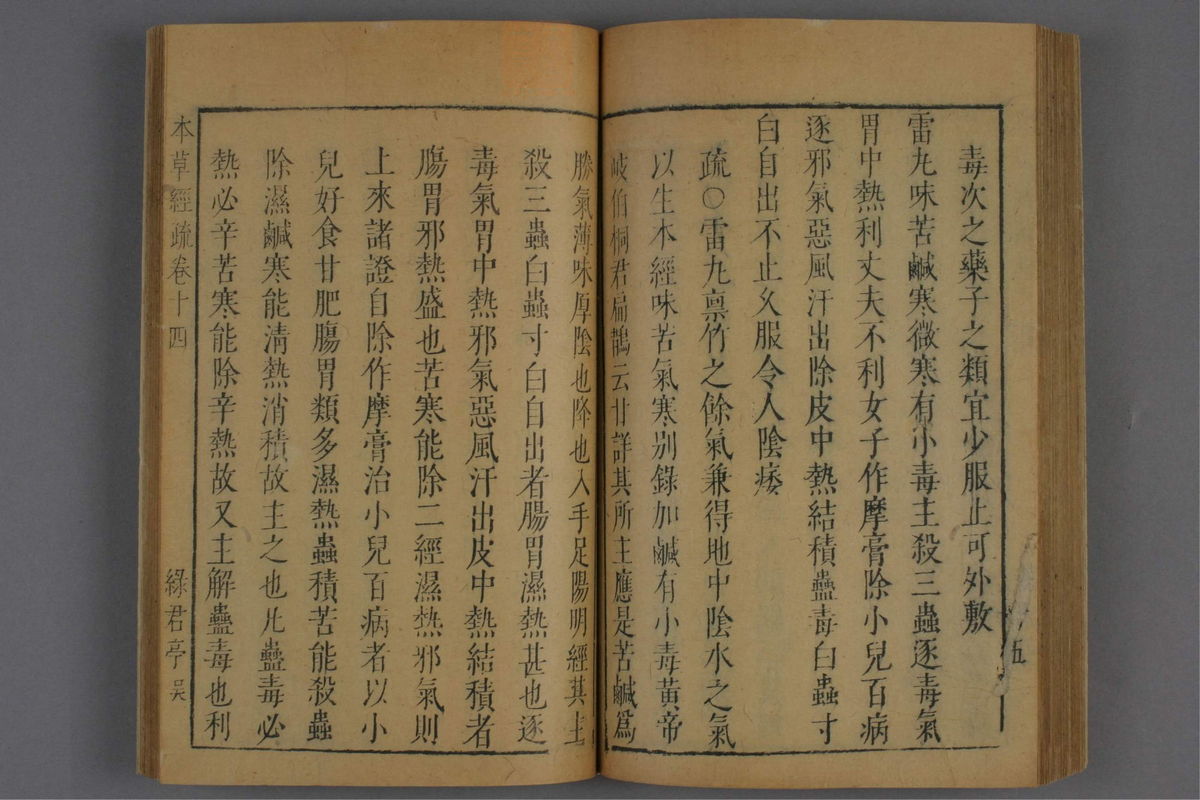 毒次之藥子之類宜少服止可外敷
雷丸味苦鹹寒微寒有小毒主殺三蟲逐毒氣
胃中熱利丈夫不利女子作摩膏除小兒百病
逐邪氣惡風汗出除皮中熱結積蠱毒白蟲寸
白自出不止久服令人陰痿
疏〇雷丸禀竹之餘氣兼得地中陰水之氣
以生本經味苦氣寒别錄加鹹有小毒黃帝
岐伯桐君扁鵲云甘詳其所主應是苦鹹爲
勝氣薄味厚陰也降也入手足陽明經其主
殺三蟲白蟲寸白自出者腸胃濕熱甚也逐
毒氣胃中熱邪氣惡風汗出皮中熱結積者
腸胃邪熱盛也苦寒能除二經濕熱邪氣則
上來諸證自除作摩膏治小兒百病者以小
兒好食甘肥腸胃類多濕熱蟲積苦能殺蟲
除濕鹹寒能淸熱消積故主之也凡蠱毒必
熱必辛苦寒能除辛熱故又主解蠱毒也利
本草經疏卷十四
綠君亭 吴
五